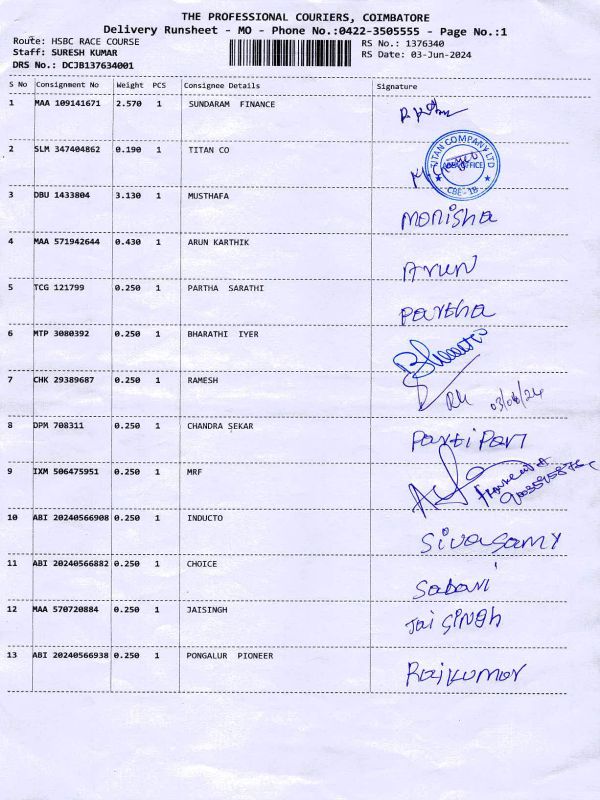 THE PROFESSIONAL COURIERS, COIMBATORE
Delivery Runsheet - MO - Phone No.:0422-3505555 - Page No.:1
Route: HSBC RACE COURSE
Staff: SURESH KUMAR
DRS No.: DCJB137634001
RS No.: 1376340
RS Date: 03-Jun-2024
S No Consignment No Weight PCS Consignee Details Signature
1 MAA 109141671 2.570 1 SUNDARAM FINANCE
2 SLM 347404862 0.190 1 TITAN CO
TITAN COMPANY LTD
CBE-18
3 DBU 1433804 3.130 1 MUSTHAFA Monisha
4 MAA 571942644 0.430 1 ARUN KARTHIK Arun
5 TCG 121799 0.250 1 PARTHA SARATHI Partha
6 MTP 3080392 0.250 1 BHARATHI IYER
7 CHK 29389687 0.250 1 RAMESH 03/06/24
8 DPM 708311 0.250 1 CHANDRA SEKAR Partipan
9 IXM 506475951 0.250 1 MRF
10 ABI 20240566908 0.250 1 INDUCTO Sivasamy
11 ABI 20240566882 0.250 1 CHOICE Sabari
12 MAA 570720884 0.250 1 JAISINGH Jai Singh
13 ABI 20240566938 0.250 1 PONGALUR PIONEER Rajkumar